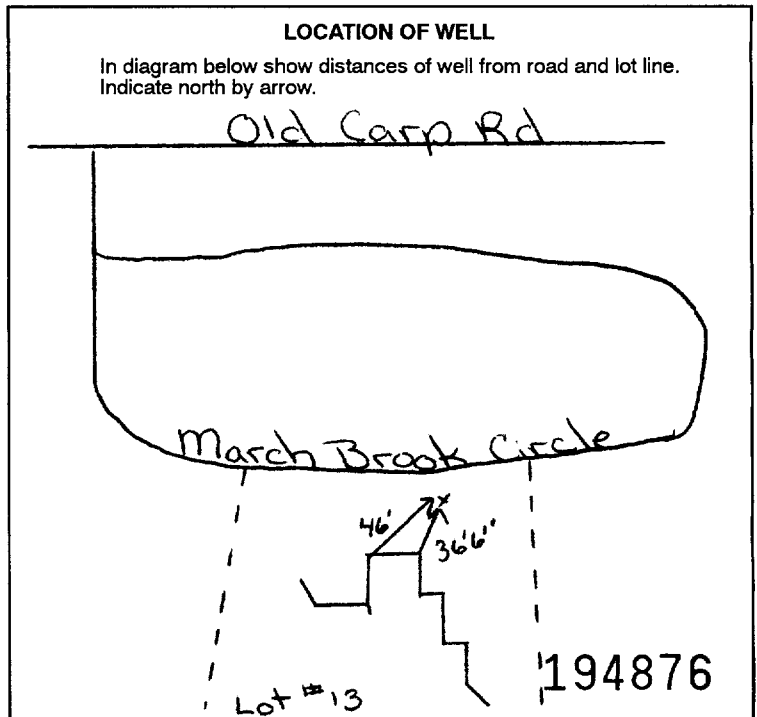 LOCATION OF WELL
In diagram below show distances of well from road and lot line.
Indicate north by arrow.
Old Carp Rd
March Brook Circle
46'
36'6"
Lot #13
194876